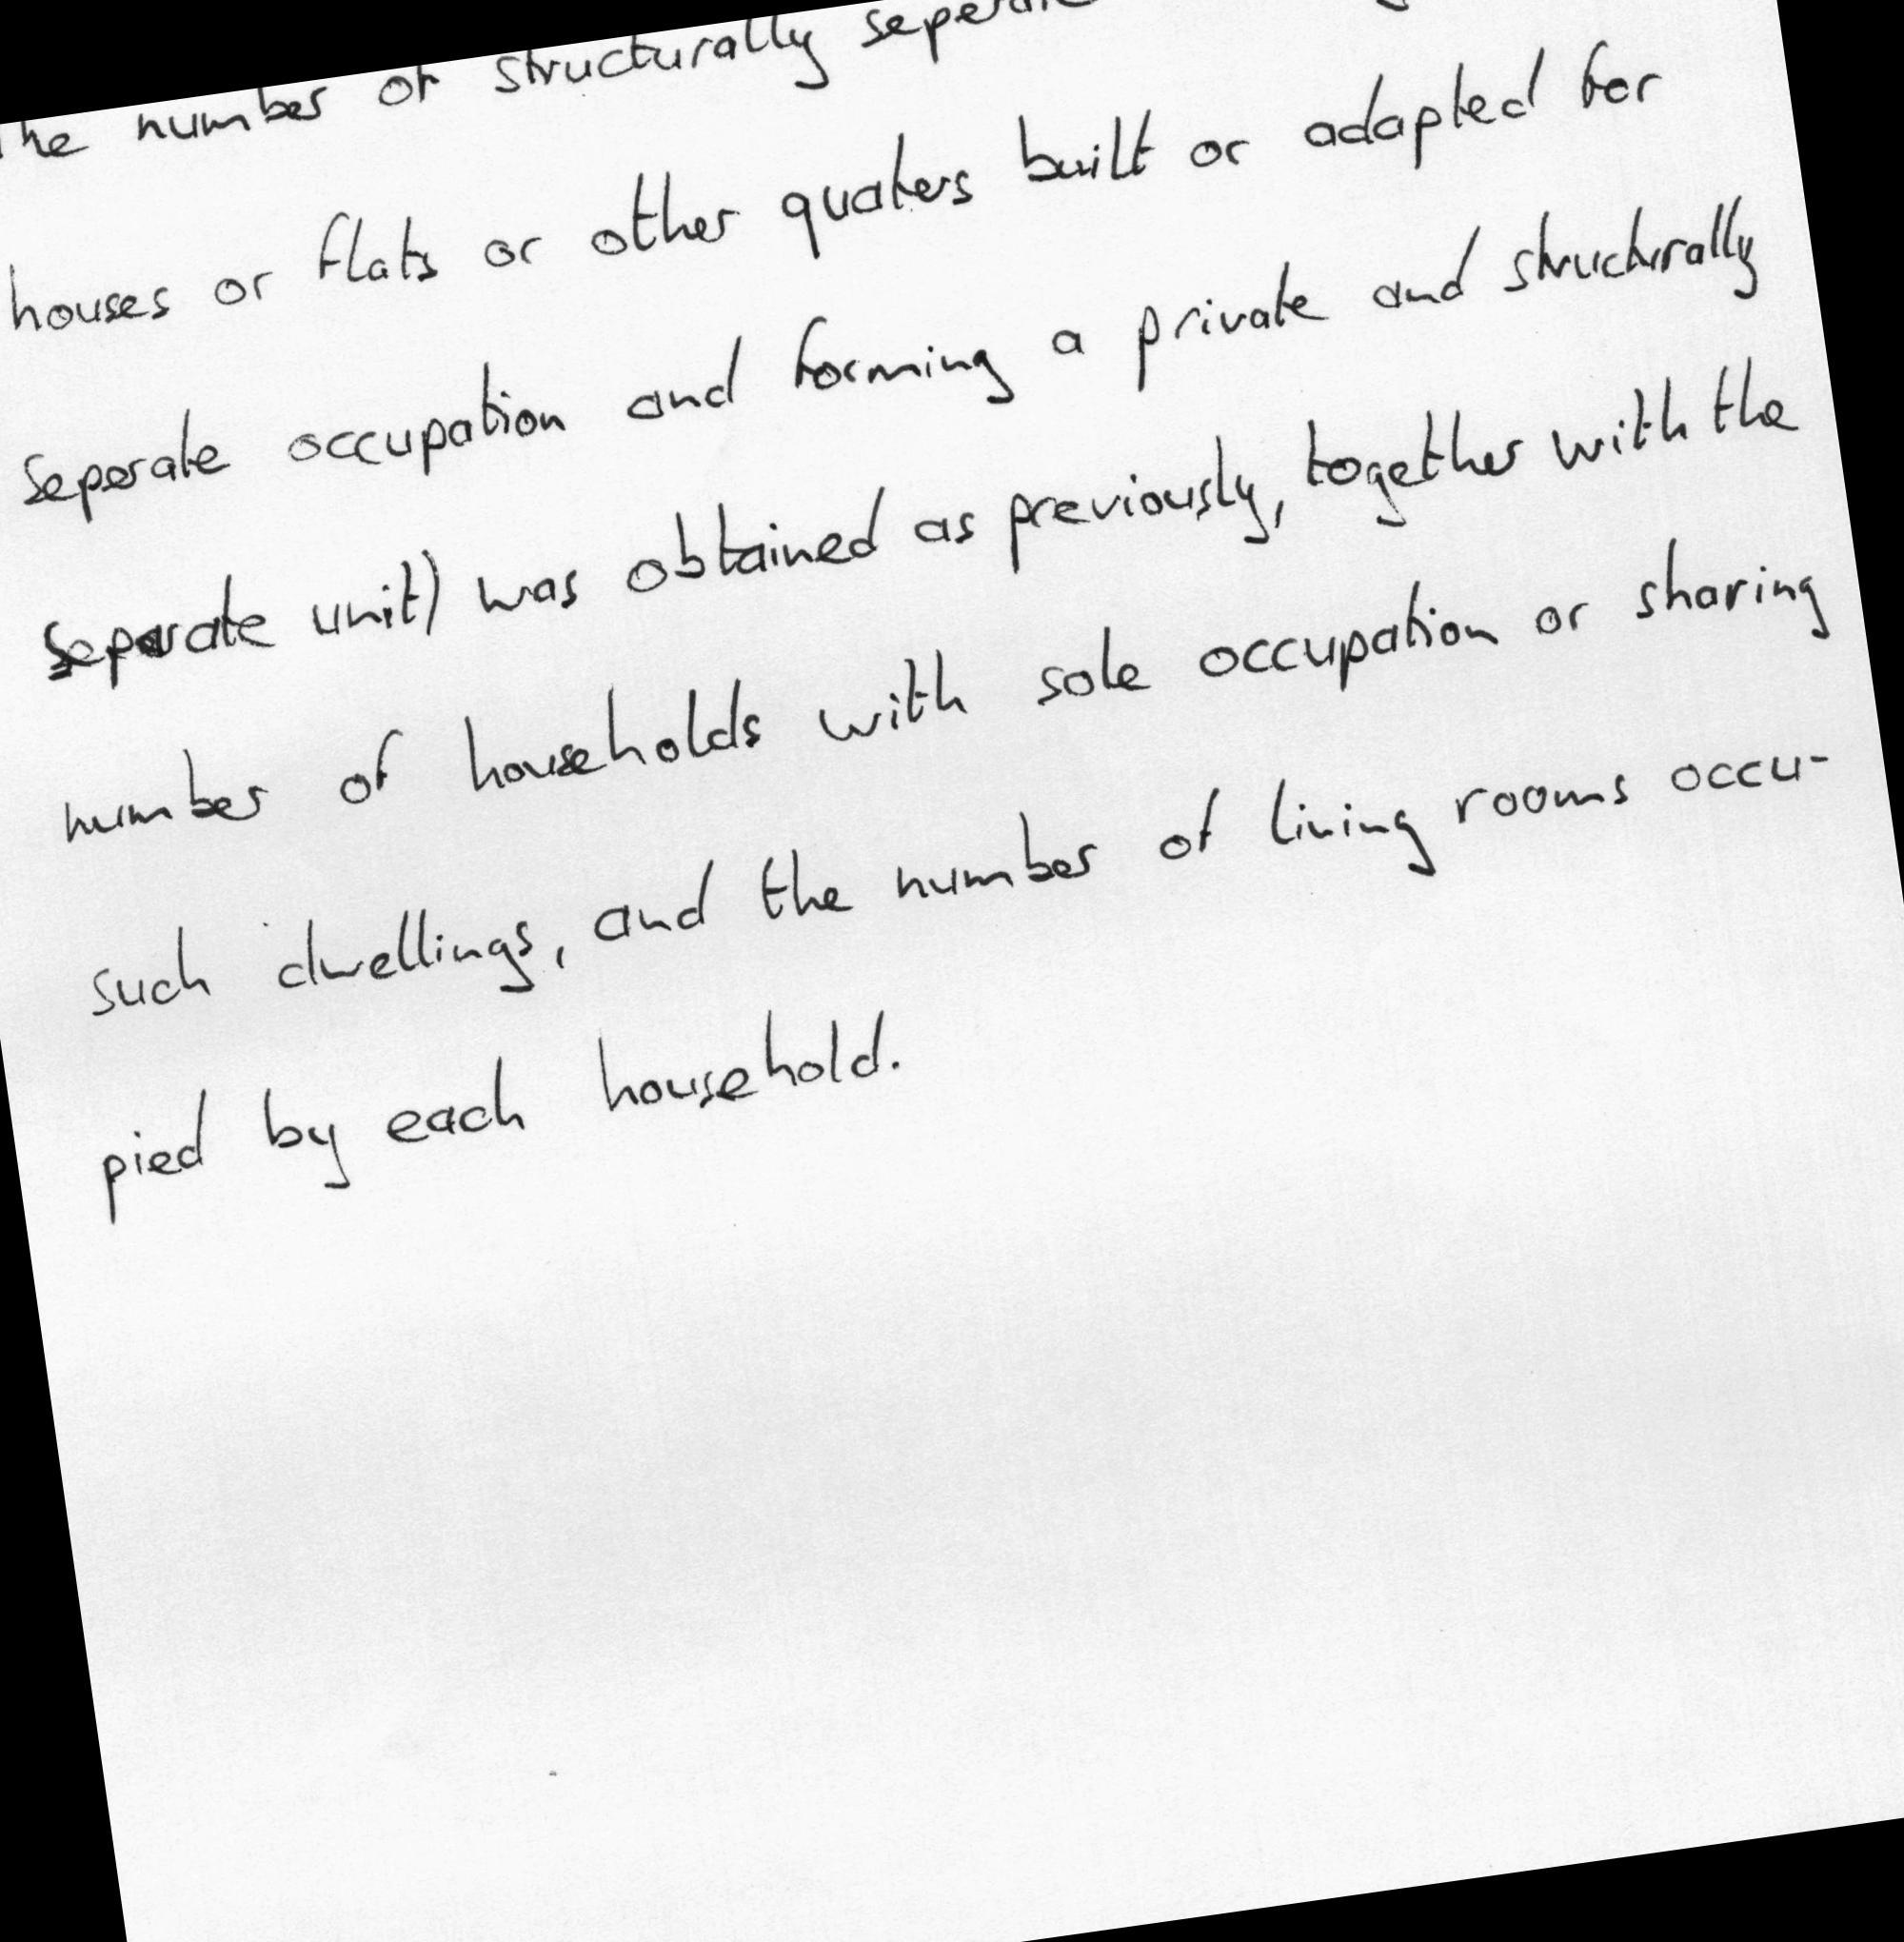 The number of structurally seperate
houses or flats or other quaters built or adapted for
seperate occupation and forming a private and structurally
separate unit) was obtained as previously, together with the
number of households with sole occupation or sharing
such dwellings, and the number of living rooms occu-
pied by each household.